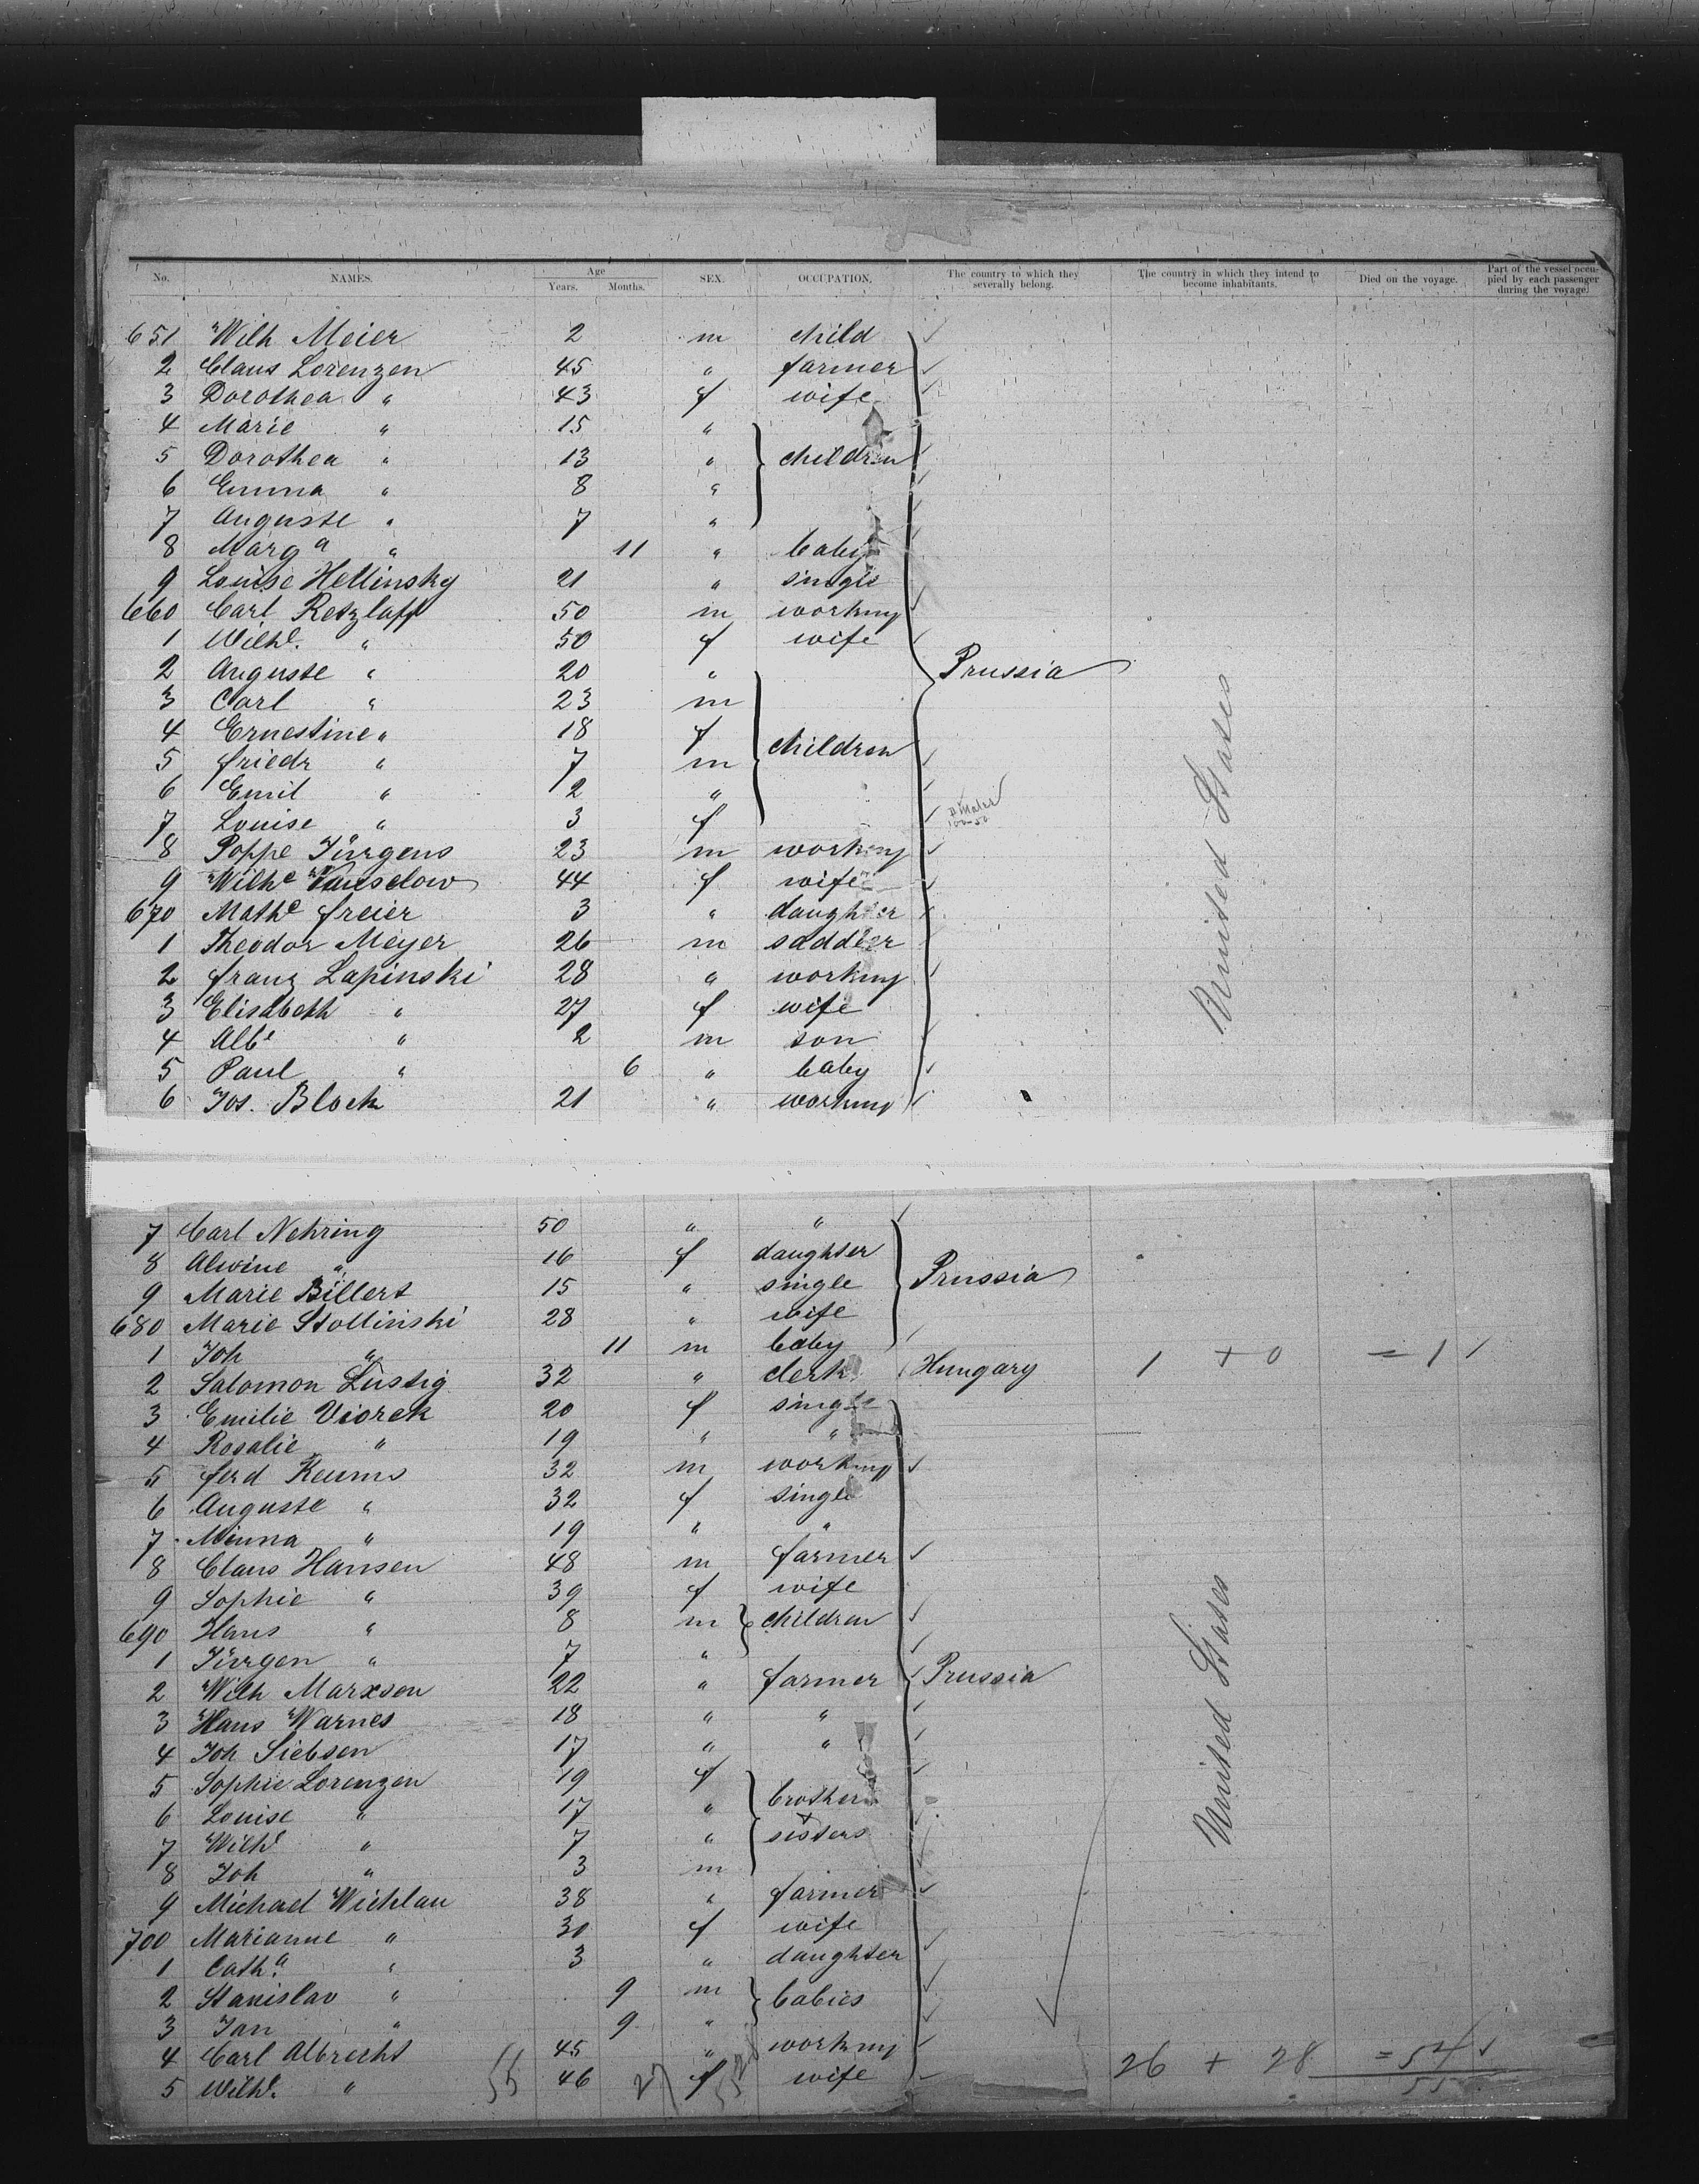 No. NAMES. Age Years. Months. SEX. OCCUPATION. The country to which they severally belong. The country in which they intend to become inhabitants. Died on the voyage. Part of the vessel occupied by each passenger during the voyage.
651 Wilh Meier 2 m child
2 Claus Lorenzen 45 " farmer
3 Dorothea " 43 f wife
4 Marie " 15 "
5 Dorothea " 13 " children
6 Emma " 8 "
7 Auguste " 7 "
8 Marga " 11 " baby
9 Louise Hellinsky 21 " single
660 Carl Retzlaff 50 m working
1 Wilhe. " 50 f wife
2 Auguste " 20 " Prussia
3 Carl " 23 m
4 Ernestine " 18 f children
5 Friedr " 7 m
6 Emil " 2 "
7 Louise " 3 f
8 Poppe Jürgens 23 m working
9 Wilhe Vanselow 44 f wife
670 Mathe Freier 3 " daughter
1 Theodor Meyer 26 m saddler
2 Franz Lapinski 28 " working
3 Elisabeth " 27 f wife
4 Albt " 2 m son
5 Paul " 6 " baby
6 Jos. Block 21 " working
United States
7 Carl Nehring 50 " "
8 Alwine " 16 f daughter
9 Marie Billert 15 " single Prussia
680 Marie Stollinski 28 " wife
1 Joh " 11 m baby
2 Salomon Lustig 32 " clerk Hungary 1 + 0 = 1 ✓
3 Emilie Viorek 20 f single
4 Rosalie " 19 " "
5 Ferd Keums 32 m working
6 Auguste " 32 f single
7 Minna " 19 " "
8 Claus Hansen 48 m farmer
9 Sophie " 39 f wife
690 Hans " 8 m children
1 Jürgen " 7 "
2 Wilh Marxsen 22 " farmer Prussia
3 Hans Warnes 18 " "
4 Joh Siebsen 17 " "
5 Sophie Lorenzen 19 f
6 Louise " 17 " brother
7 Wilhe " 7 " sisters
8 Joh " 3 m
9 Michael Wichlau 38 " farmer
700 Marianne " 30 f wife
1 Catha. " 3 " daughter
2 Stanislav " 9 m babies
3 Jan " 9 "
4 Carl Albrecht 45 " working
5 Wilhe. " 46 f wife 26 + 28 = 54 ✓
55 27 55
United States